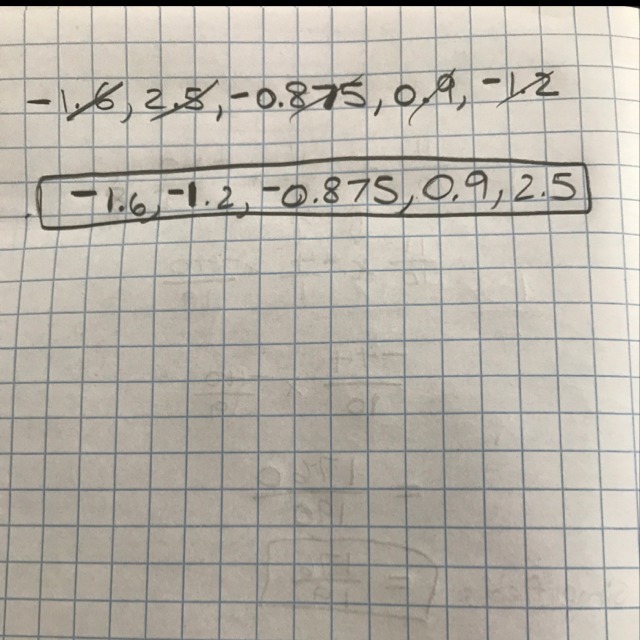 -1.6, 2.5, -0.875, 0.9, -1.2
-1.6, -1.2, -0.875, 0.9, 2.5